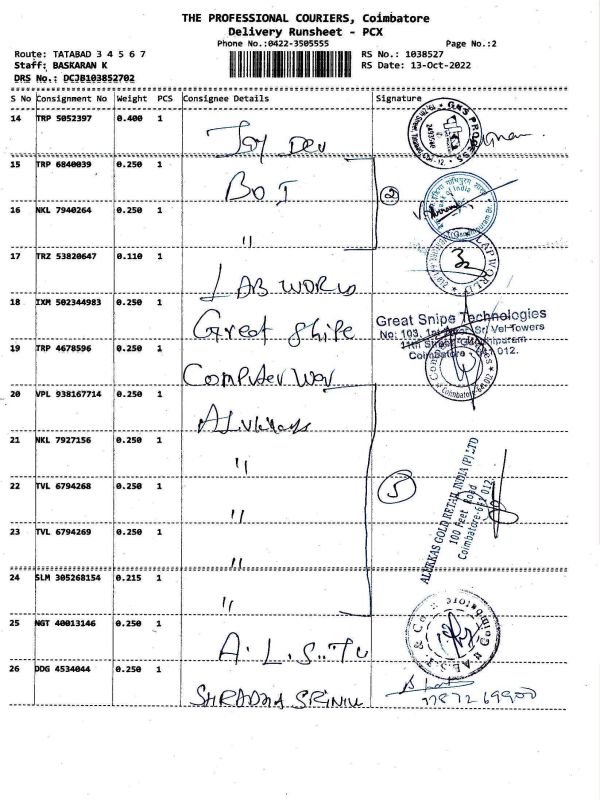 THE PROFESSIONAL COURIERS, Coimbatore
Delivery Runsheet - PCX
Phone No.:0422-3505555 Page No.:2
Route: TATABAD 3 4 5 6 7 RS No.: 1038527
Staff: BASKARAN K RS Date: 13-Oct-2022
DRS No.: DCJB103852702
S No Consignment No Weight PCS Consignee Details Signature
14 TRP 5052397 0.400 1
GKS PROCESS
15 TRP 6840039 0.250 1
BOI
2
Bank of India
16 NKL 7940264 0.250 1
"
17 TRZ 53820647 0.110 1
LAB WORLD
18 IXM 502344983 0.250 1
Great Snipe
Great Snipe Technologies
No: 103, 1st Floor, Sri Vel Towers
11th Street, Gandhipuram
Coimbatore - 641 012.
19 TRP 4678596 0.250 1
Computer War
20 VPL 938167714 0.250 1
21 NKL 7927156 0.250 1
"
22 TVL 6794268 0.250 1
"
5
ALUKKAS GOLD RETAIL INDIA (P) LTD
100 Feet Road
Coimbatore-641 012
23 TVL 6794269 0.250 1
"
24 SLM 305268154 0.215 1
"
25 NGT 40013146 0.250 1
26 DDG 4534044 0.250 1